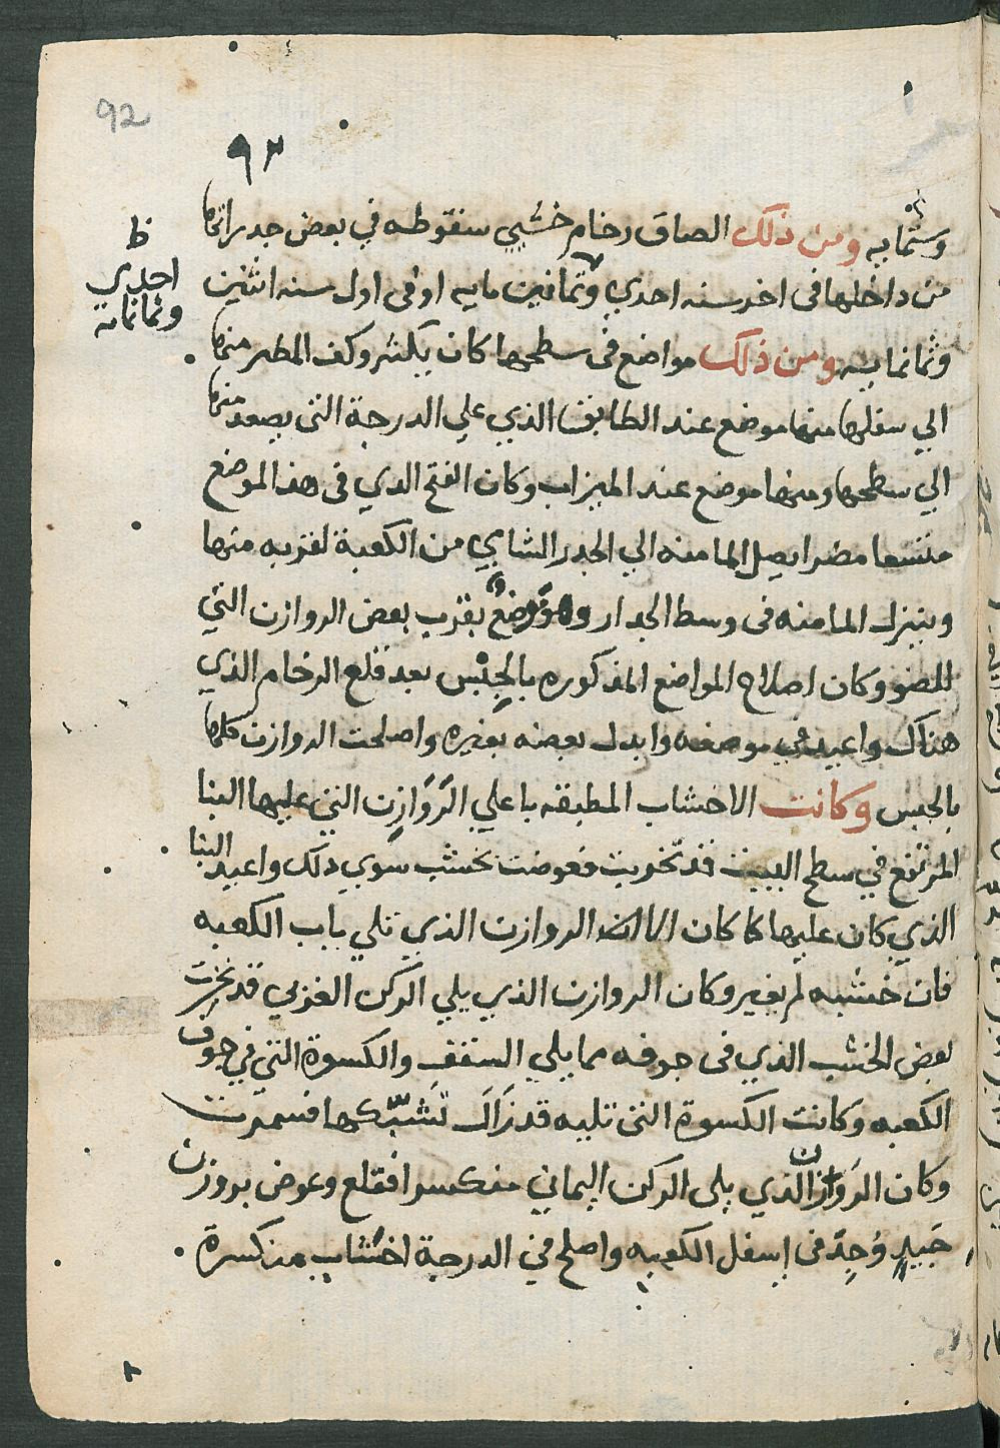 92
٩٢
وستمايه ومن ذلك الصاق رخام خشي سقوطه في بعض جدرانها
من داخلها فى اخر سنه احدي وثمانين مايه او فى اول سنه اثنين
وثمانمايه ومن ذلك مواضع فى سطحها كان يكثر وكف المطر منها
الي سفلها منها موضع عند الطابق الذي علي الدرجة التى يصعد منها
الي سطحها ومنها موضع عند الميزاب وكان الفتح الدي فى هذا الموضع
متسعا مضرا يصل الما منه الي الجدر الشامي من الكعبة لقربه منها
وينزل الما منه فى وسط الجدار وموضع بقرب بعض الروازن التي
للضو وكان اصلاح المواضع المذكوره بالجبس بعد قلع الرخام الذي
هناك واعيد في موضعه وابدل بعضه بغيره واصلحت الروازن كلها
بالجبس وكانت الاخشاب المطبقه باعلي الرَوَازِن التي عليها البنا
المرتفع في سطح البيت قد تخربت فعوضت بخشب سوي دلك واعيد البنا
الذي كان عليها كما كان الا الروازن الذي تلي باب الكعبه
فان خشبه لم يغير وكان الروازن الذي يلي الركن الغربي قد تخرب
بعض الخشب الذي فى جوفه مما يلي السقف والكسوة التي في جوف
الكعبه وكانت الكسوة التى تليه قد زَالَ تَشَبّكها فسمرت
وكان الرَوازن الذي يلى الركن اليماني منكسرا فقلع وعوض بروزن
جَدِيدٍ وُجِدَ فى اسفل الكعبه واصلح في الدرجة اخشاب منكسرة
ظ
احدي
وثمانمايه